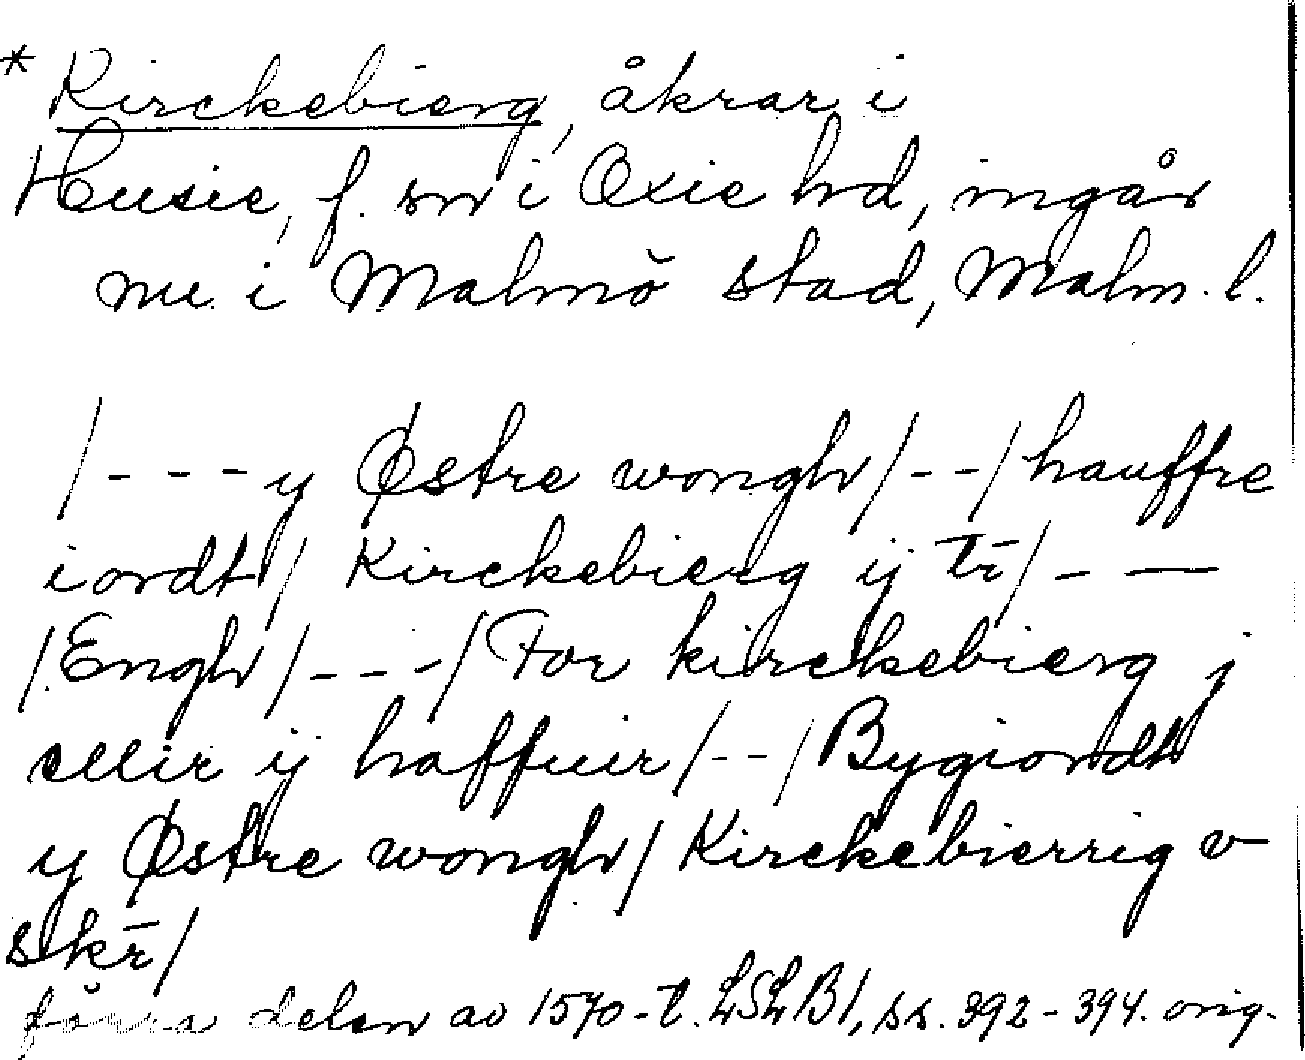 * Kirckebierg, åkrar i
Husie, f. sn i Oxie hd, ingår
nu i Malmö stad, Malm. l.
/- - - y Østre wongh/- -/hauffre
iordt/ Kirckebierg ij tr̄/- -
/Engh/- - -/For kirckebierg j
ellir ij haffuir/- -/Bygiordt
y Østre wongh/Kirckebierrig v
skr̄/
förra delen av 1570-t. LSLB1, ss. 392-394. orig.